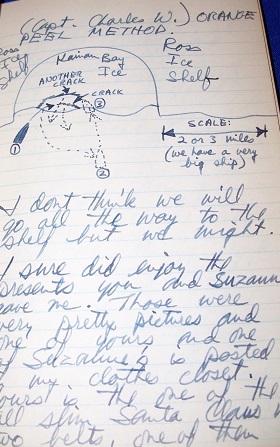 (Capt. Charles W.) ORANGE
PEEL METHOD.
Ross
Ice
Shelf
Ross
Ice
Shelf
Kainan Bay
Ice
ANOTHER
CRACK
CRACK
3
1
2
SCALE:
2 or 3 miles
(we have a very
big ship)
I dont think we will
go all the way to the
shelf but we might.
I sure did enjoy the
presents you and Suzann
gave me. Those were
very pretty pictures and
one of yours and one
of Suzanne's is posted
my clothes closet.
Yours is the one of the
Santa Claus
two belts, one of them